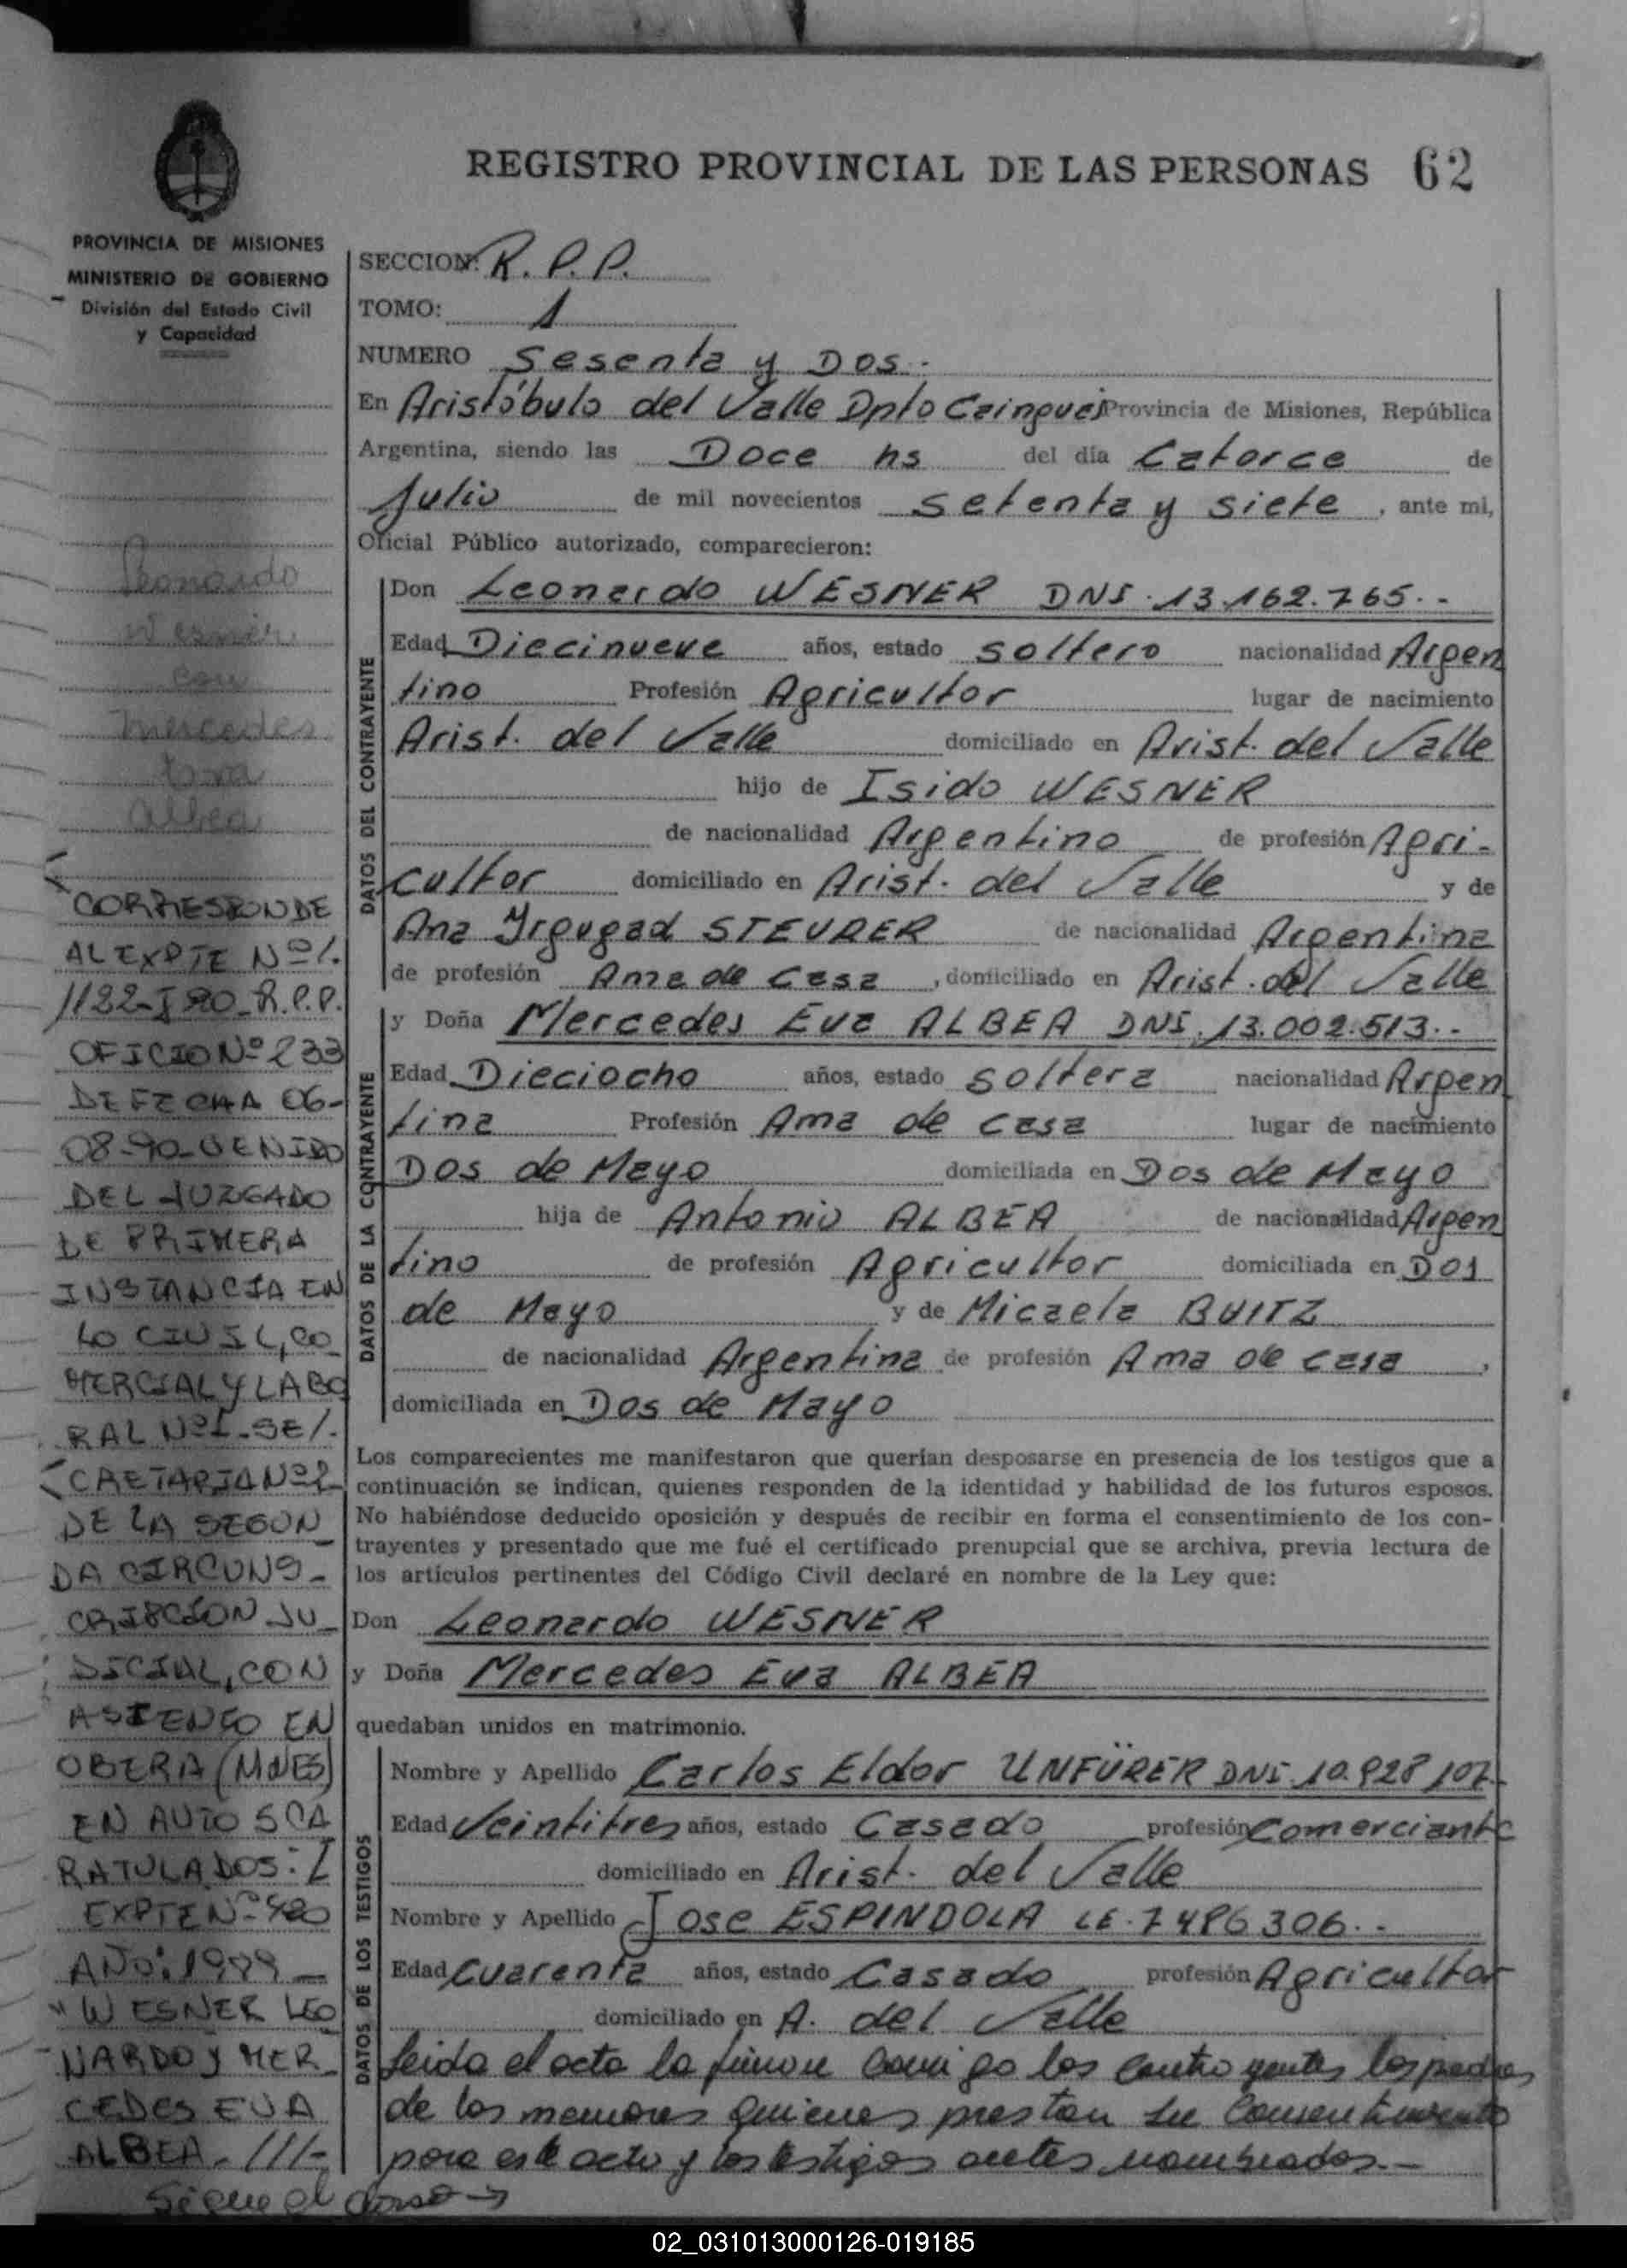 REGISTRO PROVINCIAL DE LAS PERSONAS 62
PROVINCIA DE MISIONES
MINISTERIO DE GOBIERNO
División del Estado Civil
y Capacidad
Leonardo
Wesner
con
Mercedes
Eva
Albea
CORRESPONDE
AL EXPTE Nº/.
1132-I-90-R.P.P.
OFICIO Nº 233
DE FECHA 06-
08-90-VENIDO
DEL JUZGADO
DE PRIMERA
INSTANCIA EN
LO CIVIL, CO
MERCIAL Y LABO
RAL Nº1-SE/.
CRETARIA Nº2
DE LA SEGUN_
DA CIRCUNS_
CRIPCION JU_
DICIAL, CON
ASIENTO EN
OBERA (MNES)
EN AUTOS CA
RATULADOS:
EXPTE Nº 480
AÑO: 1989_
"WESNER LEO
NARDO y MER_
CEDES EVA
ALBEA-///-
Sigue al dorso →
SECCION: R. P. P.
TOMO: 1
NUMERO Sesenta y Dos.
En Aristóbulo del Valle Dpto Cainguas Provincia de Misiones, República
Argentina, siendo las Doce hs del día Catorce de
Julio de mil novecientos setenta y siete, ante mi,
Oficial Público autorizado, comparecieron:
DATOS DEL CONTRAYENTE
Don Leonardo WESNER DNI. 13.162.765..
Edad Diecinueve años, estado soltero nacionalidad Argen
tino Profesión Agricultor lugar de nacimiento
Arist. del Valle domiciliado en Arist. del Valle
hijo de Isido WESNER
de nacionalidad Argentino de profesión Agri-
cultor domiciliado en Arist. del Valle y de
Ana Irgugad STEURER de nacionalidad Argentina
de profesión Ama de Casa, domiciliado en Arist. del Valle
DATOS DE LA CONTRAYENTE
y Doña Mercedes Eva ALBEA DNI. 13.002.513..
Edad Dieciocho años, estado soltera nacionalidad Argen
tina Profesión Ama de casa lugar de nacimiento
Dos de Mayo domiciliada en Dos de Mayo
hija de Antonio ALBEA de nacionalidad Argen
tino de profesión Agricultor domiciliada en Dos
de Mayo y de Micaela BUITZ
de nacionalidad Argentina de profesión Ama de casa,
domiciliada en Dos de Mayo
Los comparecientes me manifestaron que querían desposarse en presencia de los testigos que a
continuación se indican, quienes responden de la identidad y habilidad de los futuros esposos.
No habiéndose deducido oposición y después de recibir en forma el consentimiento de los con-
trayentes y presentado que me fué el certificado prenupcial que se archiva, previa lectura de
los artículos pertinentes del Código Civil declaré en nombre de la Ley que:
Don Leonardo WESNER
y Doña Mercedes Eva ALBEA
quedaban unidos en matrimonio.
DATOS DE LOS TESTIGOS
Nombre y Apellido Carlos Eldor UNFÜRER DNI. 10.928 107-
Edad Veintitres años, estado Casado profesión Comerciante
domiciliado en Arist. del Valle
Nombre y Apellido Jose ESPINDOLA LE. 7486306..
Edad Cuarenta años, estado Casado profesión Agricultor
domiciliado en A. del Valle
Leida el acta la firman conmigo los contrayentes los padres
de los menores quienes prestan su consentimiento
para este acto y los testigos antes nombrados.-
02_031013000126-019185